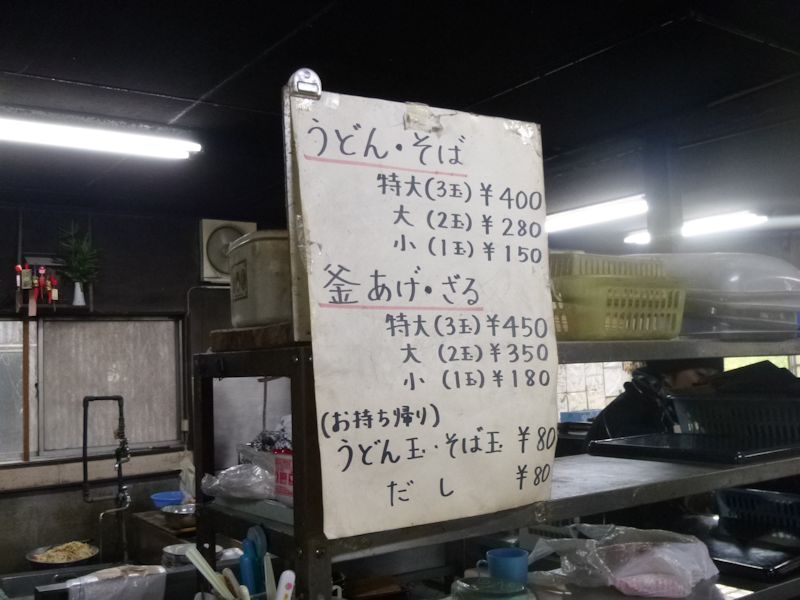 うどん・そば
特大(3玉) ¥400
大 (2玉) ¥280
小 (1玉) ¥150
釜あげ・ざる
特大(3玉) ¥450
大 (2玉) ¥350
小 (1玉) ¥180
(お持ち帰り)
うどん玉・そば玉 ¥80
だし ¥80